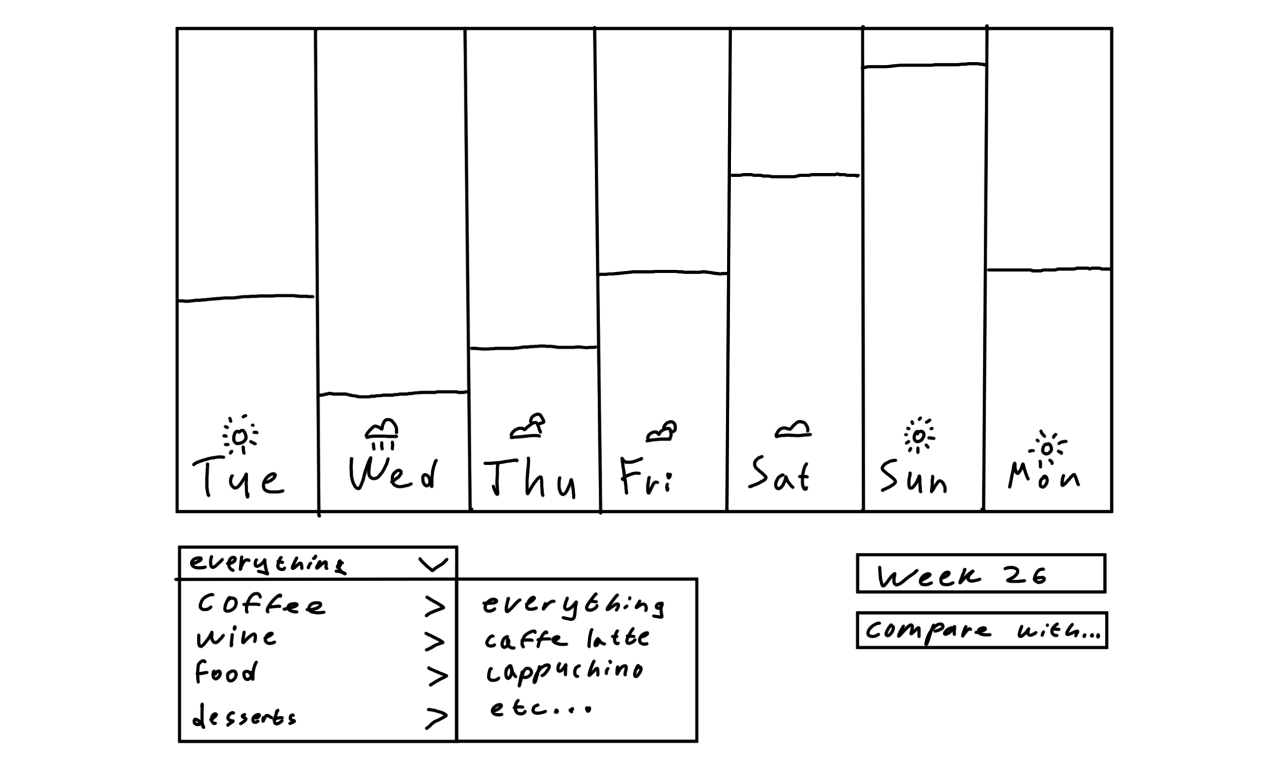 Tue
Wed
Thu
Fri
Sat
Sun
Mon
everything
coffee
wine
food
desserts
everything
caffe latte
cappuchino
etc...
Week 26
compare with...